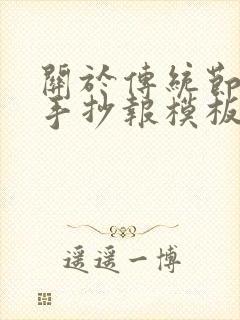 關於傳統節
手抄報模板
遥遥一博